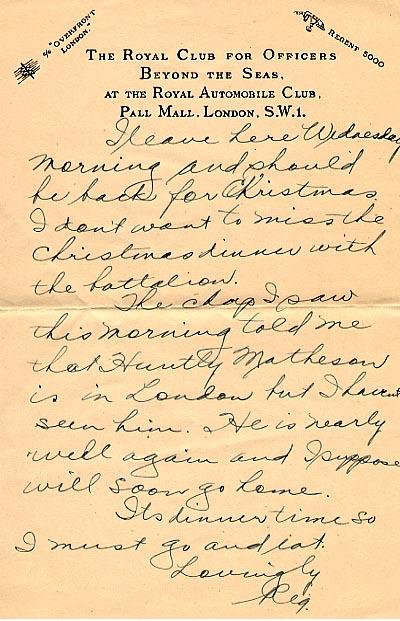 ℅ "OVERFRONT
LONDON."
REGENT 5000
THE ROYAL CLUB FOR OFFICERS
BEYOND THE SEAS,
AT THE ROYAL AUTOMOBILE CLUB,
PALL MALL, LONDON, S.W.1.
I leave here Wednesday
morning and should
be back for Christmas.
I don't want to miss the
Christmas dinner with
the battalion.
The chap I saw
this morning told me
that Huntly Matheson
is in London but I havent
seen him. He is nearly
well again and I suppose
will soon go home.
Its dinner time so
I must go and eat.
Lovingly
Reg.